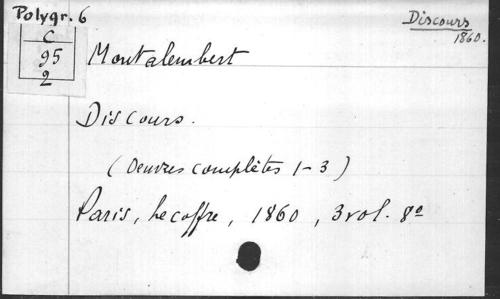 Polygr. 6
C
95
2
Discours
1860.
Montalembert
Discours.
(Oeuvres complètes 1-3)
Paris, Lecoffre, 1860, 3 vol. 8º